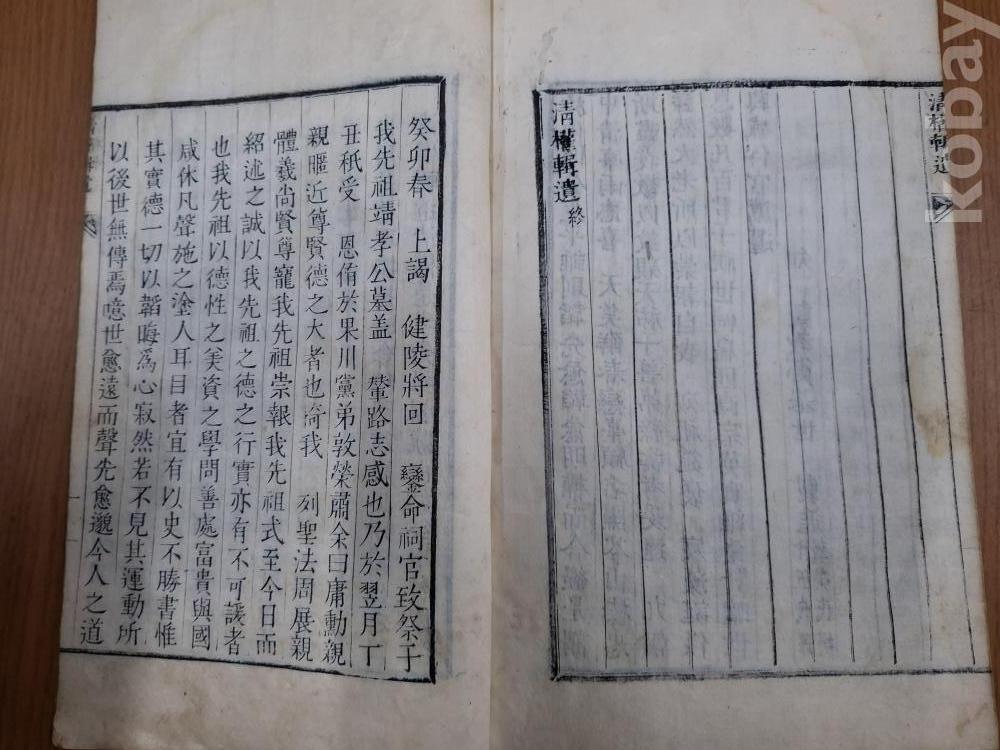 清權輯遺
清權輯遺 終
癸卯春 上謁 健陵將回 鑾命祠官致祭于
我先祖靖孝公墓盖 輦路志感也乃於翌月丁
丑秪受 恩侑於果川黨弟敦榮肅余曰庸勳親
親暱近尊賢德之大者也猗我 列聖法周展親
體羲尚賢尊寵我先祖崇報我先祖式至今日而
紹述之誠以我先祖之德之行實亦有不可諼者
也我先祖以德性之美資之學問善處富貴與國
咸休凡聲施之塗人耳目者宜有以史不勝書惟
其實德一切以韜晦爲心寂然若不見其運動所
以後世無傳焉噫世愈遠而聲先愈邈今人之道
kobay